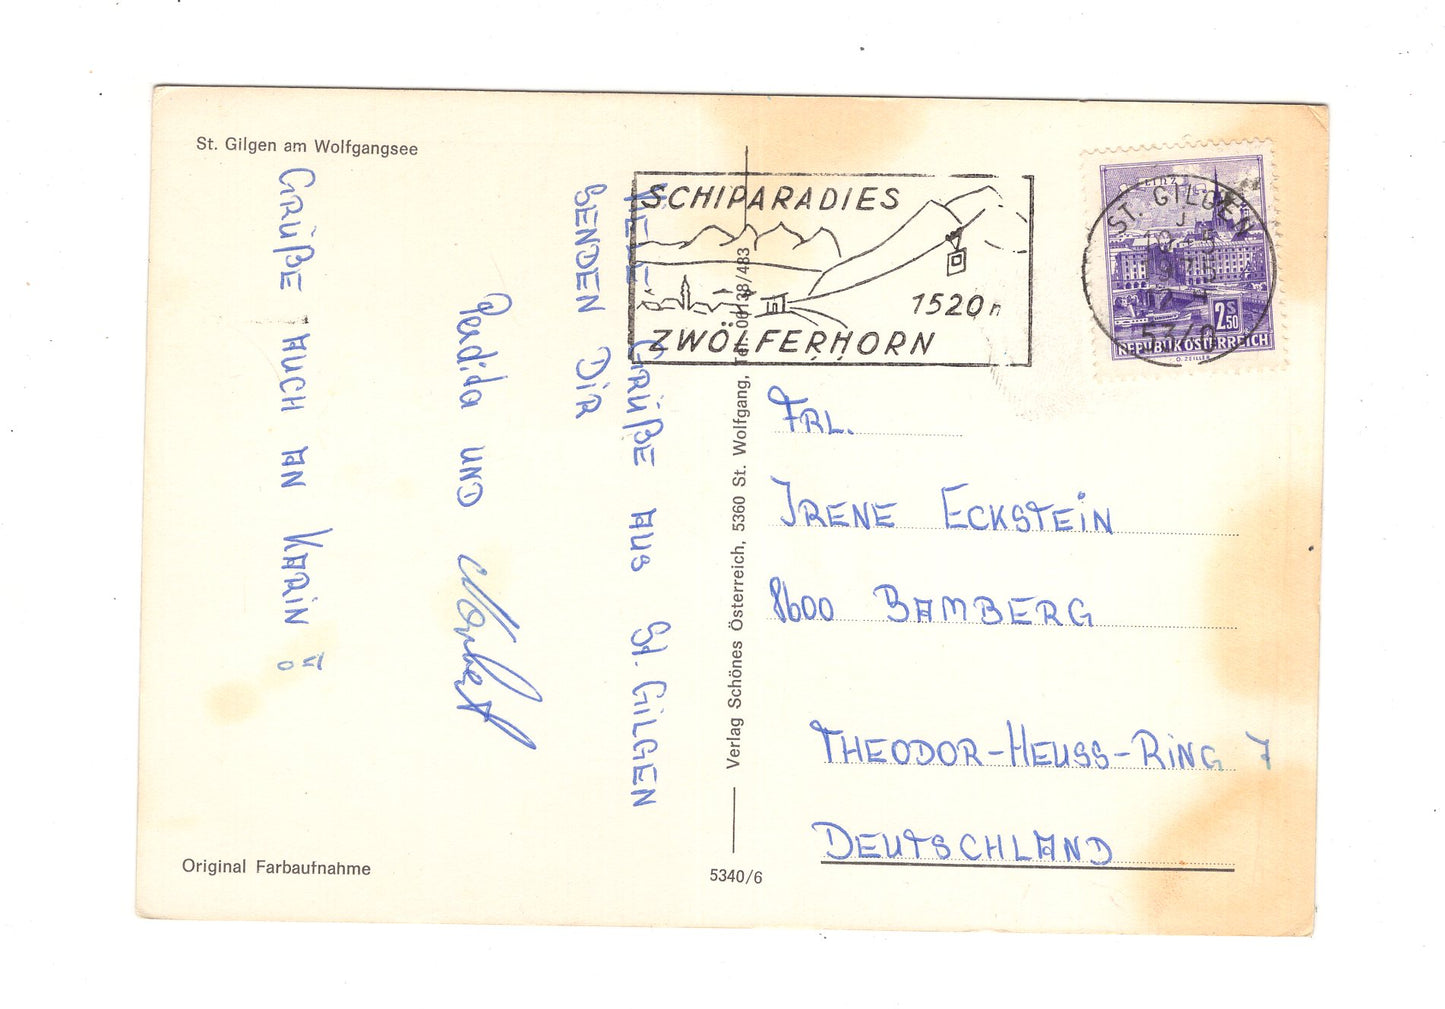 St. Gilgen am Wolfgangsee
VIELE GRÜßE AUS St. GILGEN
SENDEN DIR
und Norbert
GRÜßE AUCH AN KARIN
Original Farbaufnahme
Verlag Schönes Österreich, 5360 St. Wolfgang, Tel. 06138/483
5340/6
SCHIPARADIES
1520 m
ZWÖLFERHORN
LINZ
ST. GILGEN
1975
12
5340
2S 50
REPUBLIK ÖSTERREICH
O. ZEILLER
FRL.
IRENE ECKSTEIN
8600 BAMBERG
THEODOR-HEUSS-RING 7
DEUTSCHLAND